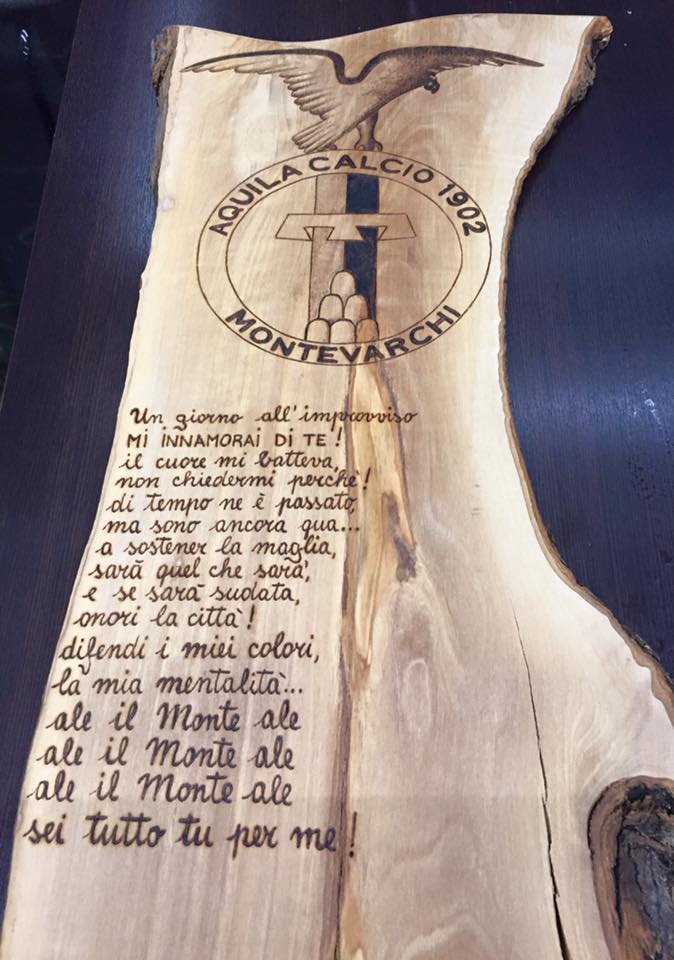 AQUILA CALCIO 1902
MONTEVARCHI
Un giorno all'improvviso
MI INNAMORAI DI TE!
il cuore mi batteva,
non chiedermi perchè!
di tempo ne è passato,
ma sono ancora qua...
a sostener la maglia,
sarà quel che sarà,
e se sarà sudata,
onori la città!
difendi i miei colori,
la mia mentalità...
ale il Monte ale
ale il Monte ale
ale il Monte ale
sei tutto tu per me!